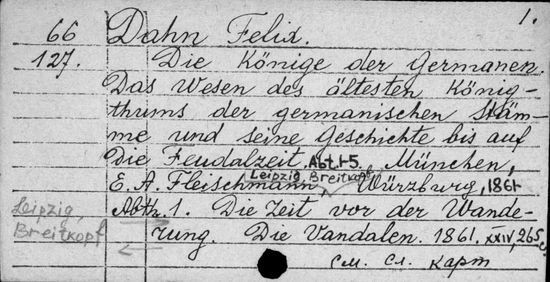 1.
66 Dahn Felix.
127. Die Könige der Germanen.
Das Wesen des ältesten König-
thums der germanischen Stäm-
me und seine Geschichte bis auf
die Feudalzeit. Abt. 1-5. München,
Leipzig, Breitkopf
E. A. Fleischmann, Würzburg, 1861
Leipzig, Abth. 1. Die Zeit vor der Wande-
Breitkopf rung. Die Vandalen. 1861. XXIV, 265 s.
см. сл. карт